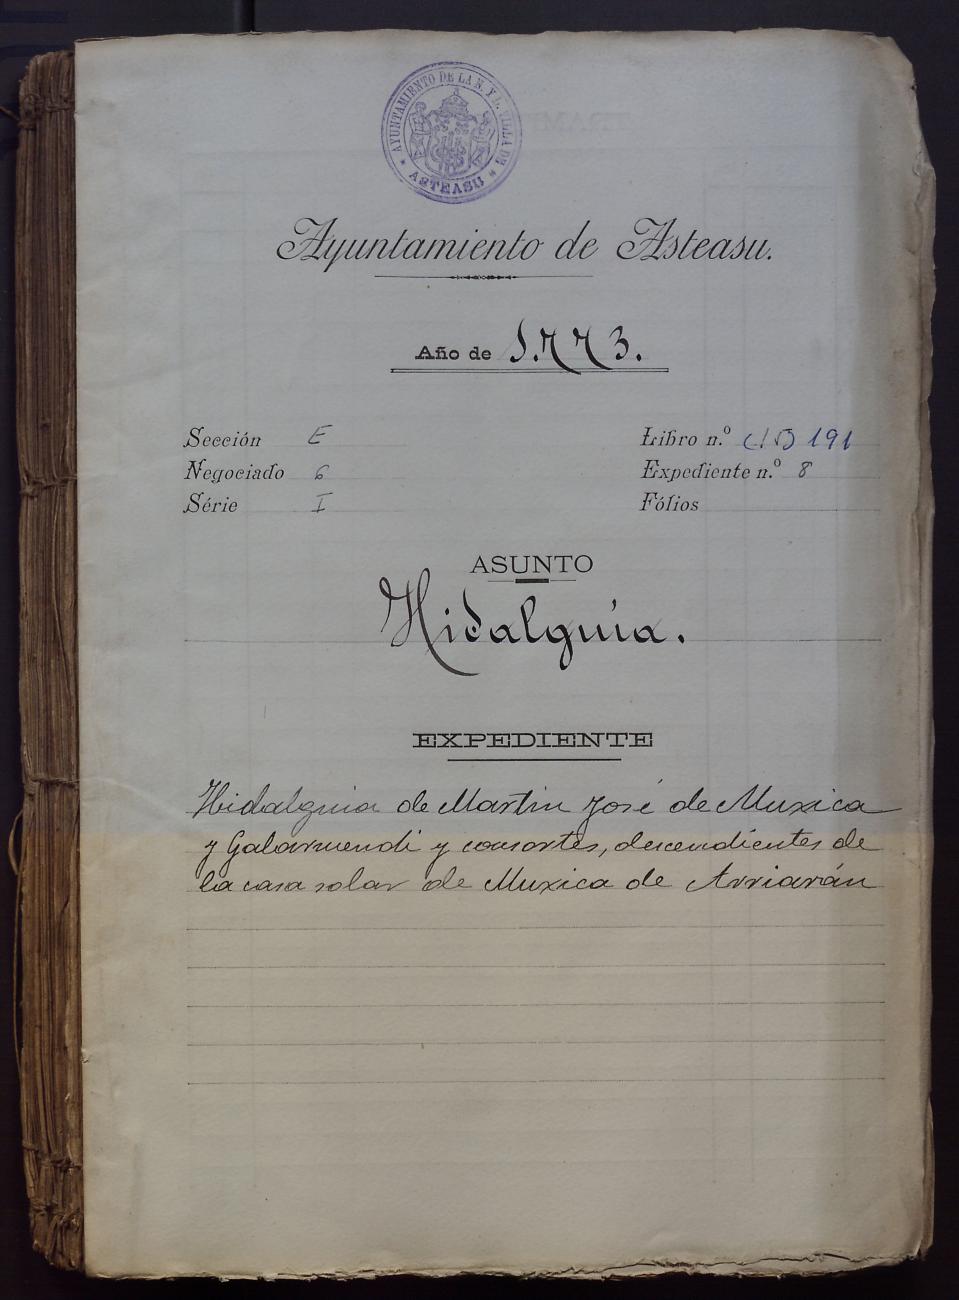 AYUNTAMIENTO DE LA N. Y L. VILLA DE
* ASTEASU *
Ayuntamiento de Asteasu.
Año de 1.773.
Sección E
Libro n.º 191
Negociado 6
Expediente n.º 8
Série I
Fólios
ASUNTO
Hidalguía.
EXPEDIENTE
Hidalguia de Martin José de Muxica
y Galarmendi y consortes, descendientes de
la casa solar de Muxica de Arriarán